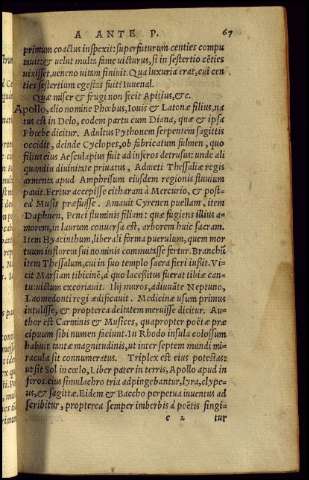 A ANTE P. 67
primum coactus inspexit: superfuturum centies compu
tauit: & uelut multa fame uicturus, si in sestertio cēties
uixisset, ueneno uitam finiuit. Qua luxuria erat, cui cen
ties sestertium egestas fuit? iuuenal.
Quæ miser & frugi non fecit Apitius, &c.
Apollo, alio nomine Phœbus, Iouis & Latonæ filius, na
tus est in Delo, eodem partu cum Diana, quæ & ipsa
Phœbe dicitur. Adultus Pythonem serpentem sagittis
occidit, deinde Cyclopes, ob fabricatum fulmen, quo
filius eius Aesculapius fuit ad inferos detrusus: unde ali
quandiu diuinitate priuatus, Admeti Thessaliæ regis
armenta apud Amphrisum eiusdem regionis fluuium
pauit. Fertur accepisse citharam à Mercurio, & post-
ea Musis præfuisse. Amauit Cyrenen puellam, item
Daphnen, Penei fluminis filiam: quæ fugiens illius a-
morem, in laurum conuersa est, arborem huic sacram.
Item Hyacinthum, liberali forma puerulum, quem mor
tuum in florem sui nominis commutasse fertur. Branchū
item Thessalum, cui in suo templo sacra fieri iussit. Vi-
cit Marsiam tibicinē, à quo lacessitus fuerat tibiæ can-
tu: uictum excoriauit. Ilij muros, adiuuāte Neptuno,
Laomedonti regi ædificauit. Medicinæ usum primus
intulisse, & propterea deitatem meruisse dicitur. Au-
thor est Carminis & Musices, quapropter poëtæ præ
cipuum sibi numen faciunt. In Rhodo insula colossum
habuit tantæ magnitudinis, ut inter septem mundi mi-
racula sit connumeratus. Triplex est eius potestas:
ut sit Sol in cœlo, Liber pater in terris, Apollo apud in
feros. eius simulachro tria adpingebantur, lyra, clype-
us, & sagittæ. Eidem & Baccho perpetua iuuentus ad
scribitur, propterea semper imberbis à poëtis fingi-
c 2 tur